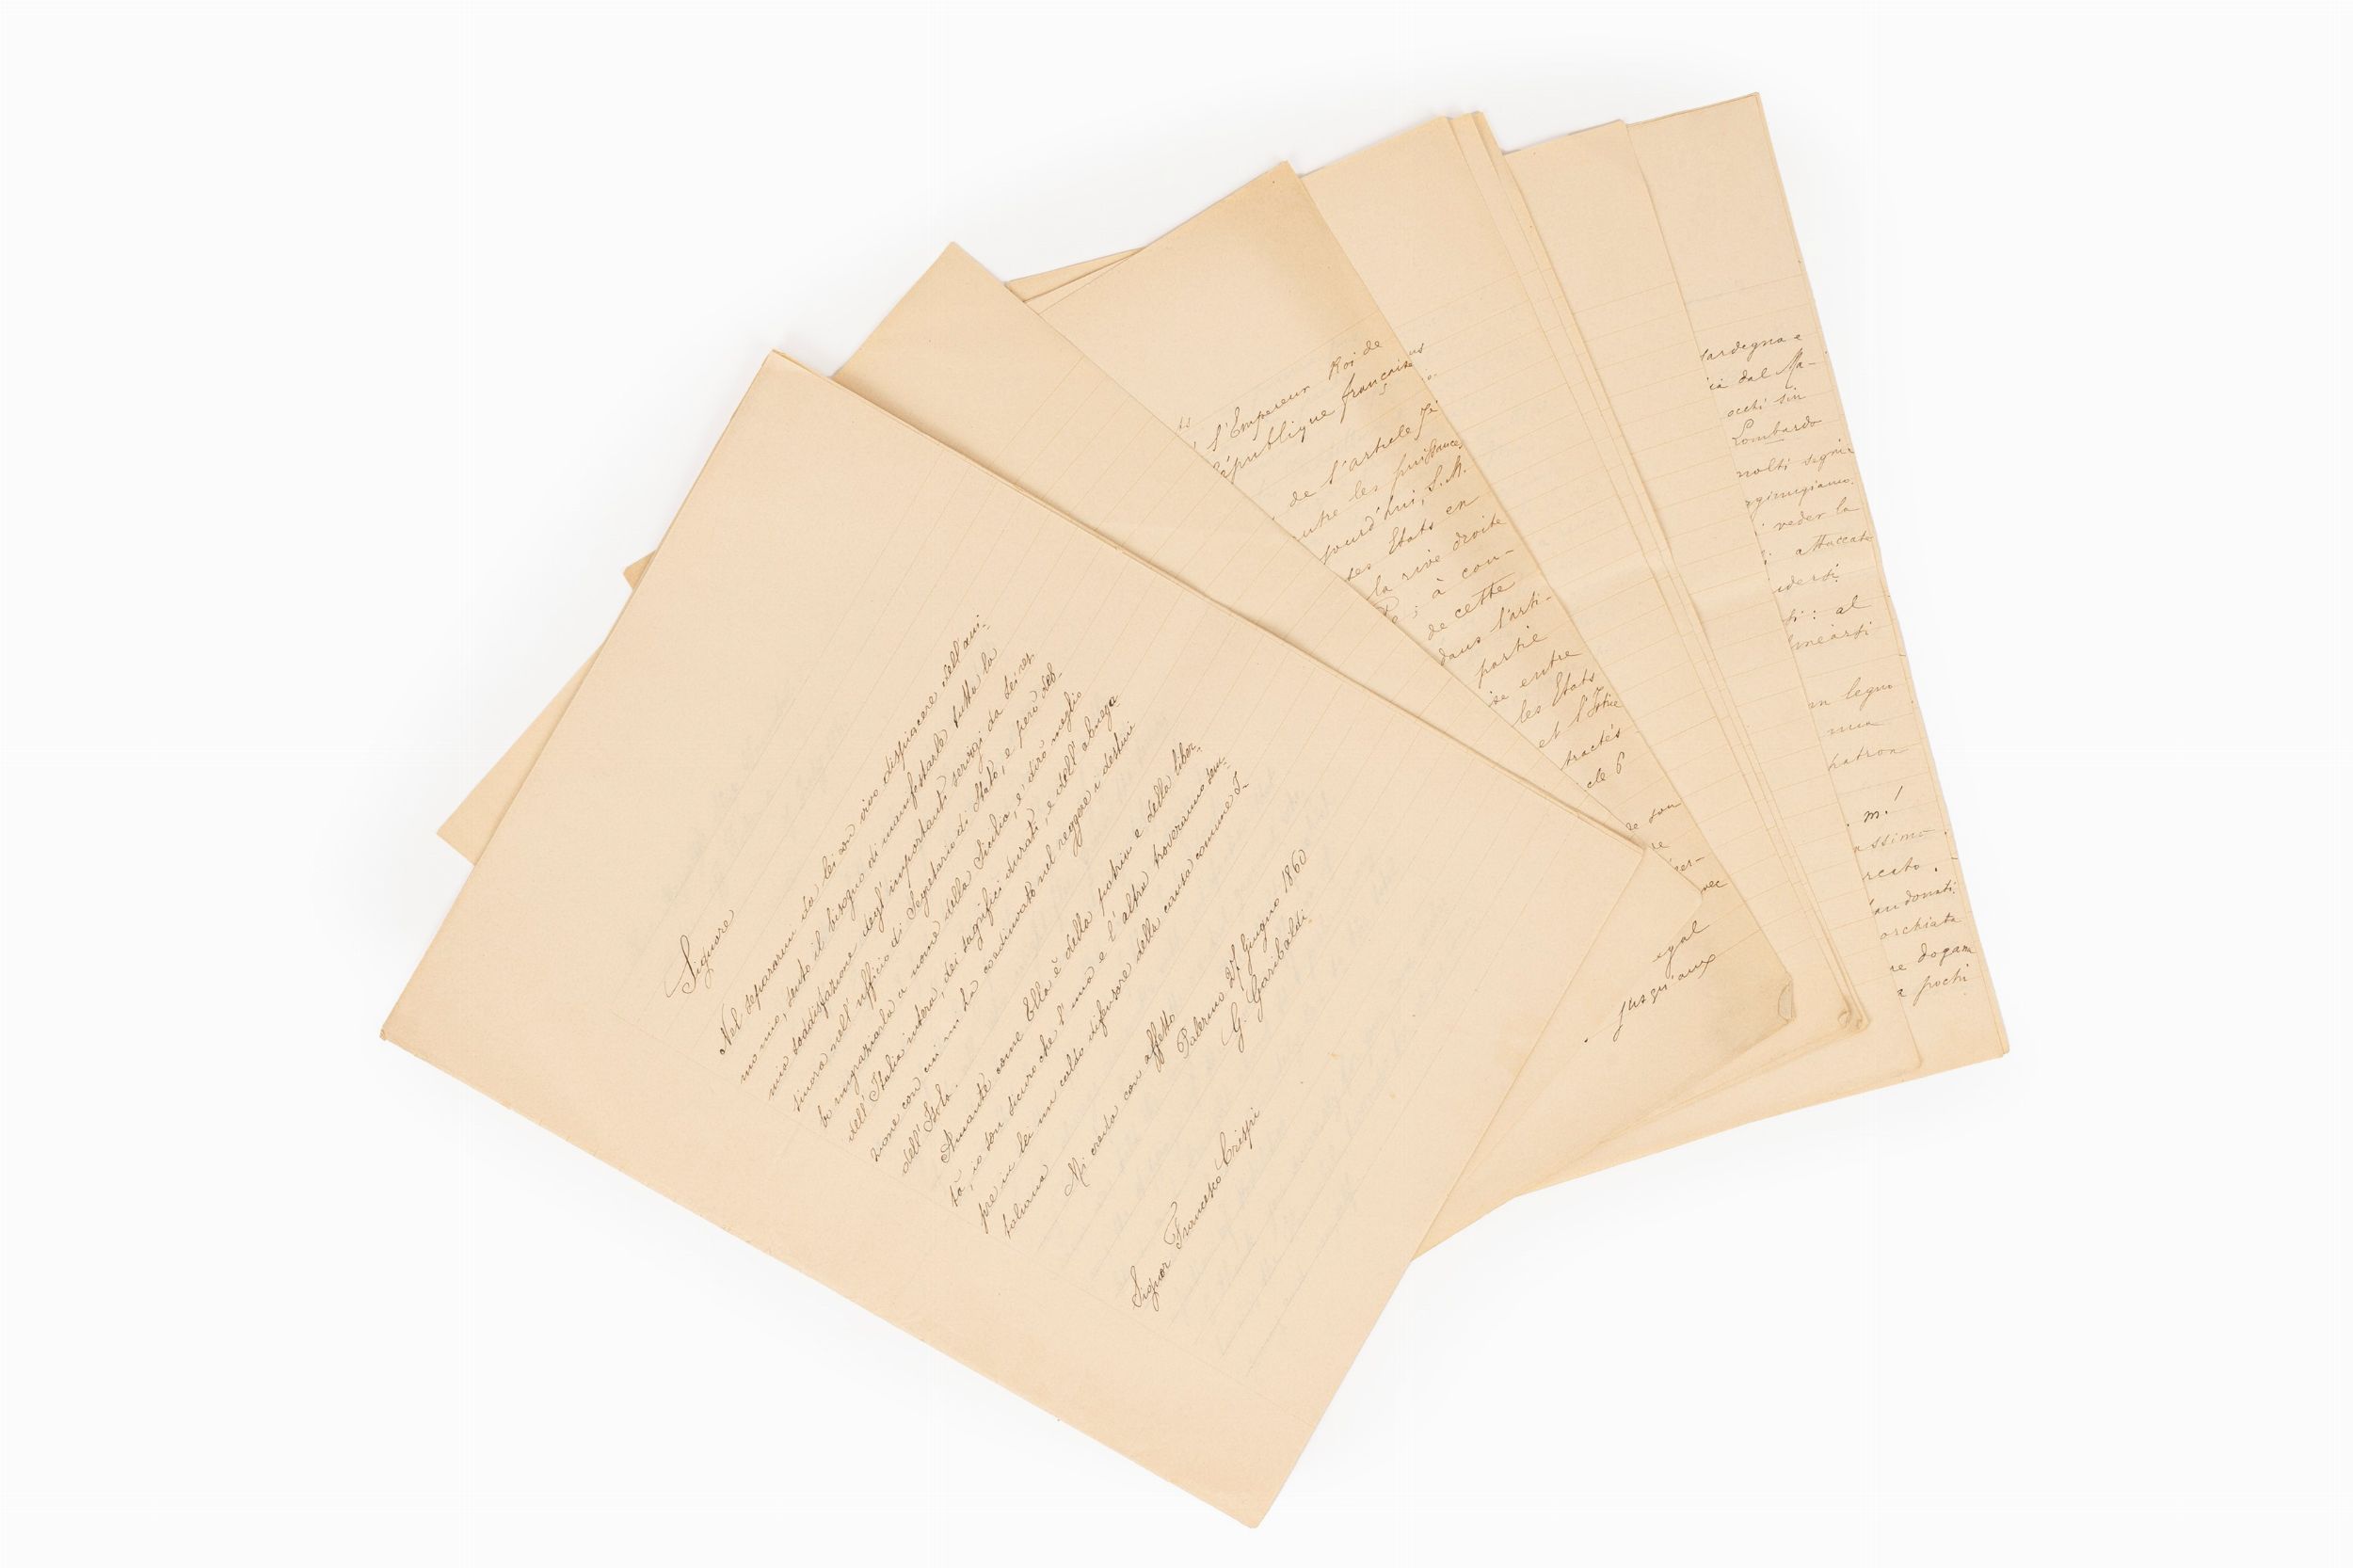 Signore
Nel separarmi da lei con vivo dispiacere dell'ani-
mo mio, sento il bisogno di manifestarle tutta la
mia soddisfazione degl'importanti servizi da lei resi
sinora nell'ufficio di Segretario di Stato, e però deb-
bo ringraziarla a nome della Sicilia, e dirò meglio
dell'Italia intera, dei sagrifici durati, e dell'abnega
zione con cui mi ha coadiuvato nel reggere i destini
dell'Isola.
Amante come Ella è della patria e della liber-
tà, io son sicuro che l'una e l'altra troveranno sem-
pre in lei un caldo difensore della causa comune I-
taliana
Mi creda con affetto
Palermo 27 Giugno 1860
G. Garibaldi.
Signor Francesco Crispi
l'Empereur Roi de
république française
de l'article
entre les puissances
jourd'hui, S. M.
ses Etats en
la rive droite
à con-
de cette
dans l'arti-
partie
entre
les Etats
et l'
tractés
cle 6
egal
jusqu'aux
Sardegna e
dal Ma-
occhi sin
Lombardo
molti segni
veder la
attaccate
al
un legno
mia
patron
m.!
assimo
donati
e dogan
e pochi